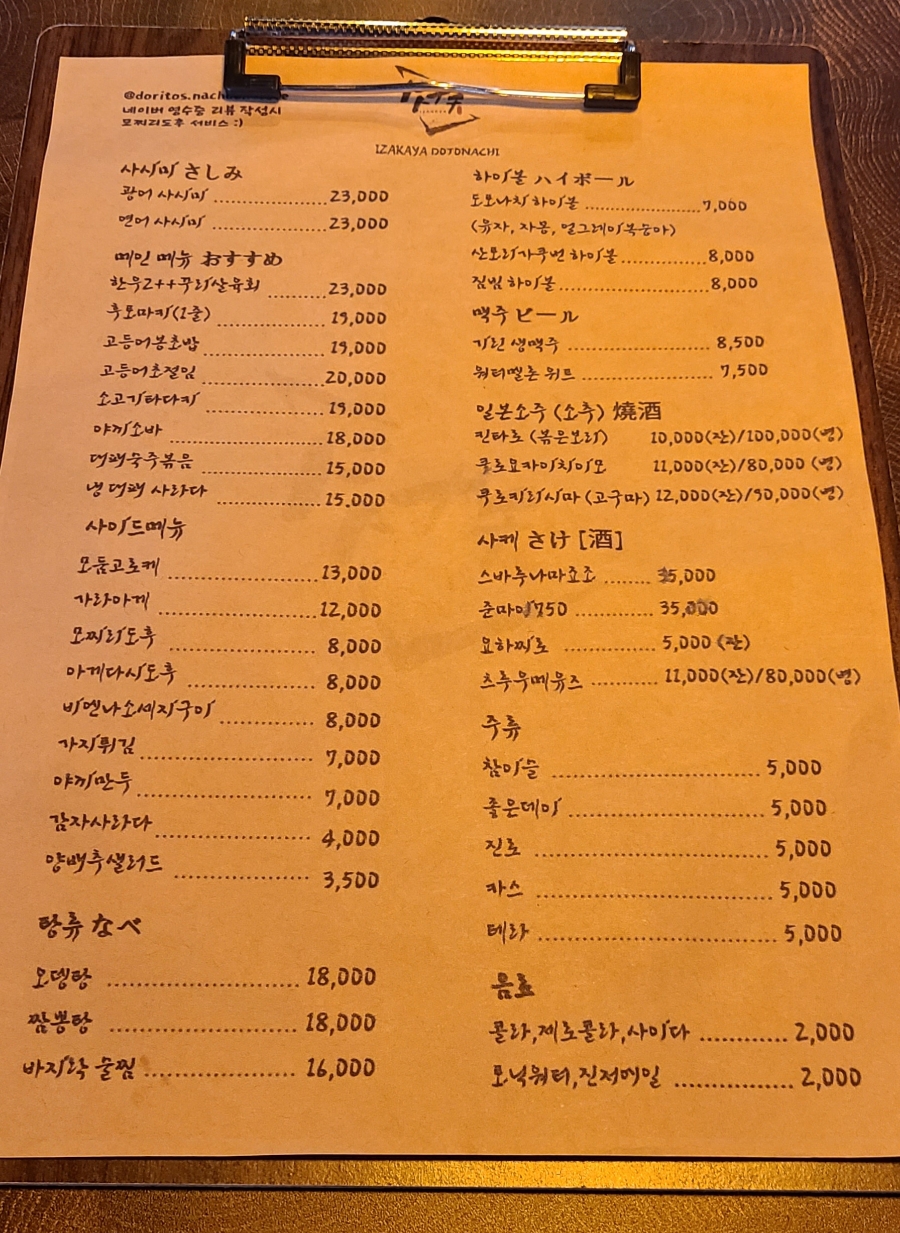 네이버 영수증 리뷰 작성시
모찌리도후 서비스 :)
IZAKAYA DOTONACHI
사시미 さしみ
광어 사시미 ........ 23,000
연어 사시미 ........ 23,000
메인 메뉴 おすすめ
한우2++꾸리살육회 ........ 23,000
후토마키(1줄) ........ 19,000
고등어봉초밥 ........ 19,000
고등어초절임 ........ 20,000
소고기타다키 ........ 19,000
야끼소바 ........ 18,000
대패숙주볶음 ........ 15,000
냉 대패 사라다 ........ 15,000
사이드메뉴
모둠고로케 ........ 13,000
가라아게 ........ 12,000
모찌리도후 ........ 8,000
아게다시도후 ........ 8,000
비엔나소세지구이 ........ 8,000
가지튀김 ........ 7,000
야끼만두 ........ 7,000
감자사라다 ........ 4,000
양배추샐러드 ........ 3,500
탕류 なべ
오뎅탕 ........ 18,000
짬뽕탕 ........ 18,000
바지락 술찜 ........ 16,000
하이볼 ハイボール
도토나치 하이볼 ........ 7,000
(유자, 자몽, 얼그레이복숭아)
산토리가쿠빈 하이볼 ........ 8,000
짐빔 하이볼 ........ 8,000
맥주 ビール
기린 생맥주 ........ 8,500
워터멜론 위트 ........ 7,500
일본소주 (소츄) 燒酒
킨타로 (볶은보리) 10,000(잔)/100,000(병)
쿠로요카이치이모 11,000(잔)/80,000 (병)
쿠로키리시마 (고구마) 12,000(잔)/90,000(병)
사케 さけ [酒]
스바루나마죠조 ........ 35,000
준마이750 ........ 35,000
요하찌로 ........ 5,000 (잔)
츠루우메유즈 ........ 11,000(잔)/80,000(병)
주류
참이슬 ........ 5,000
좋은데이 ........ 5,000
진로 ........ 5,000
카스 ........ 5,000
테라 ........ 5,000
음료
콜라,제로콜라,사이다 ........ 2,000
토닉워터,진저에일 ........ 2,000